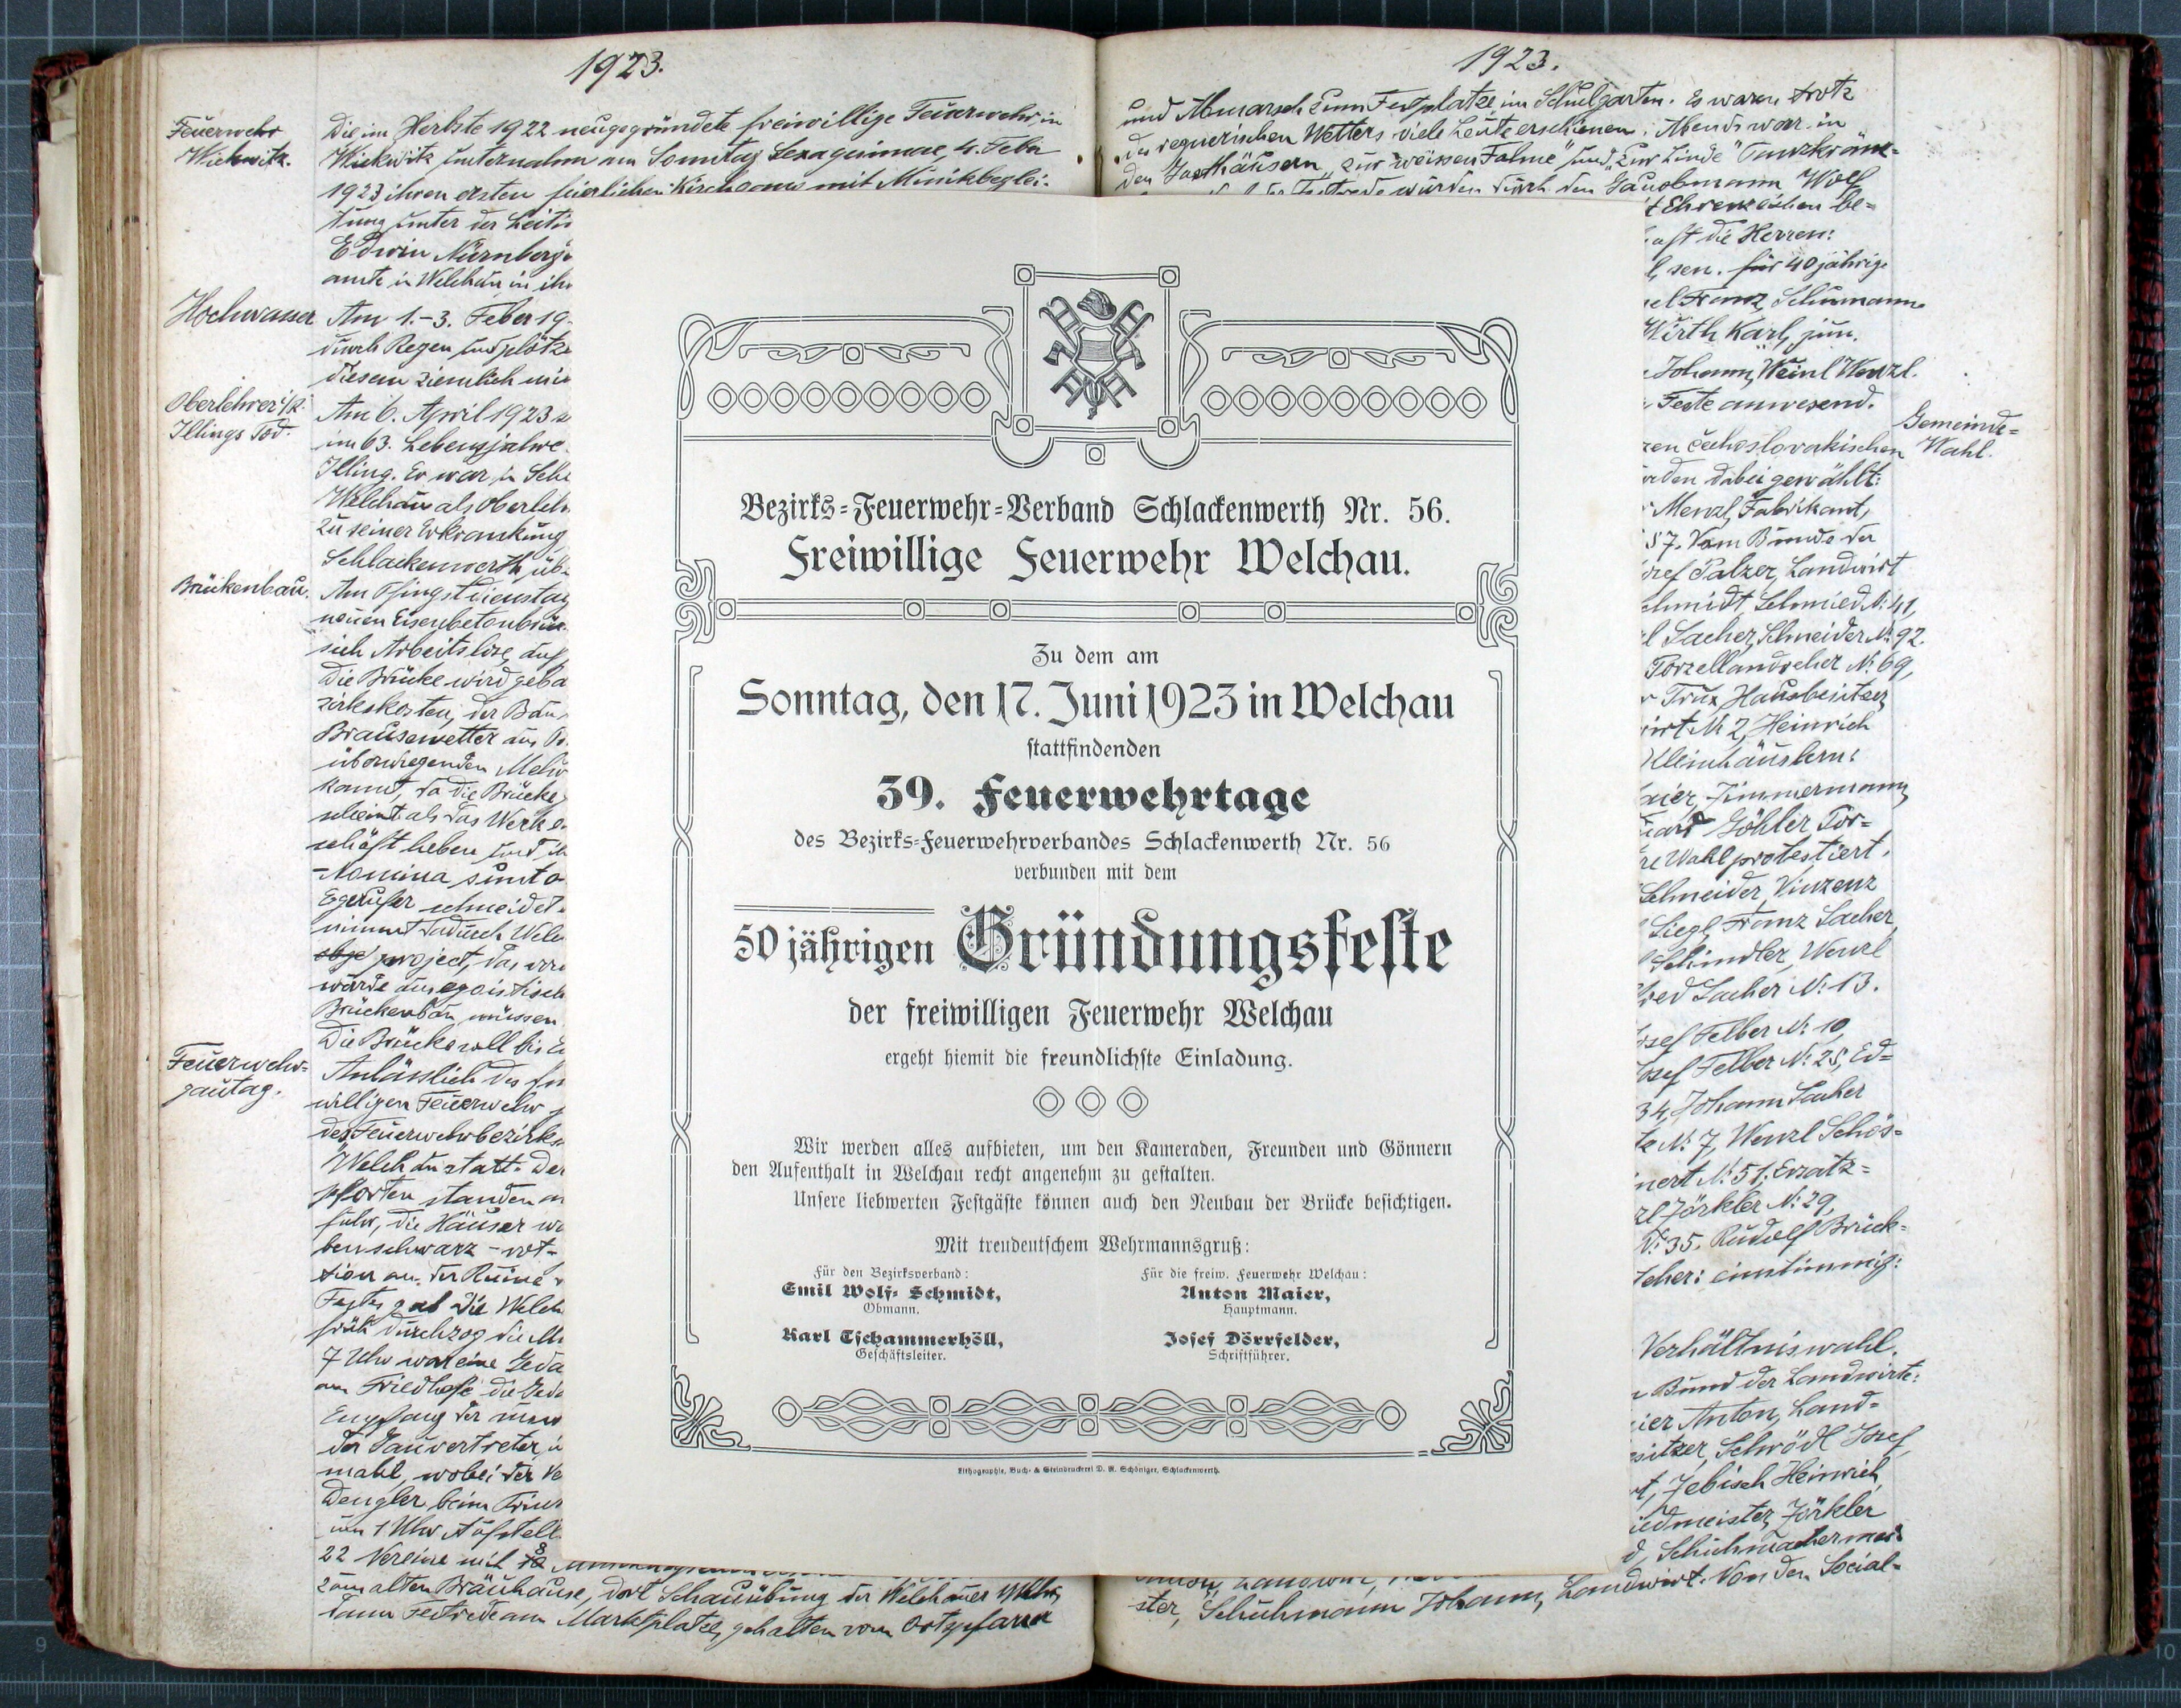 1923.
Feuerwehr
Wickwitz.
Die im Herbste 1922 neugegründete freiwillige Feuerwehr in
Wickwitz unternahm am Sonntag Sexagesimae, 4. Feber
1923 ihren ersten feierlichen Kirchgang mit Musikbeglei-
tung unter der Leitu
Edwin Nürnberg
amte in Welchau in ih
Hochwasser
Am 1.-3. Feber 19
durch Regen und plötz
diesem ziemlich
Oberlehrer i/R.
Illings Tod.
Am 6. April 1923
im 63. Lebensjahre
Illing. Er war in Schl
Welchau als Oberleh
zu seiner Erkrankung
Schlackenwerth üb
Brückenbau.
Am Pfingstdienstag
neuen Eisenbetonbrück
sich Arbeitslose auf
Die Brücke wird geba
zirkskosten, der Bau
Brausewetter aus
überwiegenden Mehr
kannt, da die Brücke
scheint als das Werk
schäft heben und
Nomina sunt o
Egerufer schneidet
nimmt dadurch Welc
project, das
würde aus egoistisch
Brückenbau müssen
Die Brücke soll bis
Feuerwehr-
gautag.
Anlässlich des
willigen Feuerwehr
des Feuerwehrbezirks
Welchau statt. De
pforten standen
fuhr, die Häuser
benschwarz-rot-
tion an der Ruine
Festes gab die Welch
früh durchzog die
7 Uhr war eine Geda
am Friedhofe die Geda
Empfang der
der Gauvertreter,
mahl, wobei der Ve
Dengler beim
um 1 Uhr Aufstell
22 Vereine mit 8
zum alten Bräuhause, dort Schauübung der Welchauer Wehr,
dann Festrede am Marktplatze, gehalten vom Ortspfarrer
1923.
und Abmarsch zum Festplatze im Schulgarten. Es waren trotz
des regnerischen Wetters viele Leute erschienen. Abends war in
den Gasthäusern „zur weissen Fahne" und „Zur Linde" Tanzkränz-
wurden durch den Gauobmann Wolf
Ehrenzeichen be-
aft die Herren:
sen. für 40 jährige
Franz, Schumann
Wirth Karl, jun.
Johann, Weinl Wenzl.
Feste anwesend.
Gemeinde-
Wahl.
čechoslovakischen
rden dabei gewählt:
Menzl, Fabrikant,
57. Vom Bunde der
sef Palzer, Landwirt
chmidt, Schmied № 41,
l Sacher, Schneider № 92.
Porzellandreher № 69,
Trux, Hausbesitzer
irt № 2, Heinrich
Kleinhäuslern:
aier, Zimmermann
uard Göhler Por-
re Wahl protestiert.
Schneider, Vinzenz
Siegl, Franz Sacher,
Schindler, Wenzl
red Sacher № 13.
osef Felber № 10,
osef Felber № 25, Ed-
34, Johann Sacher
№ 7, Wenzl Schös-
nert № 51, Ersatz-
zl Zörkler № 29,
№ 35. Rudolf Brück-
cher: einstimmig:
Verhältniswahl.
Bund der Landwirte:
ier Anton, Land-
sitzer, Schrödl Josef,
t, Zebisch Heinrich,
iedmeister, Zörkler
d, Schuhmachermei-
ster, Schuhmann Johann, Landwirt. Von den Social-
Bezirks-Feuerwehr-Verband Schlackenwerth Nr. 56.
Freiwillige Feuerwehr Welchau.
Zu dem am
Sonntag, den 17. Juni 1923 in Welchau
stattfindenden
39. Feuerwehrtage
des Bezirks-Feuerwehrverbandes Schlackenwerth Nr. 56
verbunden mit dem
50 jährigen Gründungsfeste
der freiwilligen Feuerwehr Welchau
ergeht hiemit die freundlichste Einladung.
Wir werden alles aufbieten, um den Kameraden, Freunden und Gönnern
den Aufenthalt in Welchau recht angenehm zu gestalten.
Unsere liebwerten Festgäste können auch den Neubau der Brücke besichtigen.
Mit treudeutschem Wehrmannsgruß:
Für den Bezirksverband:
Emil Wolf-Schmidt,
Obmann.
Karl Tschammerhöll,
Geschäftsleiter.
Für die freiw. Feuerwehr Welchau:
Anton Maier,
Hauptmann.
Josef Dörrfelder,
Schriftführer.
Lithographie, Buch- & Steindruckerei D. R. Schöniger, Schlackenwerth.
9
10